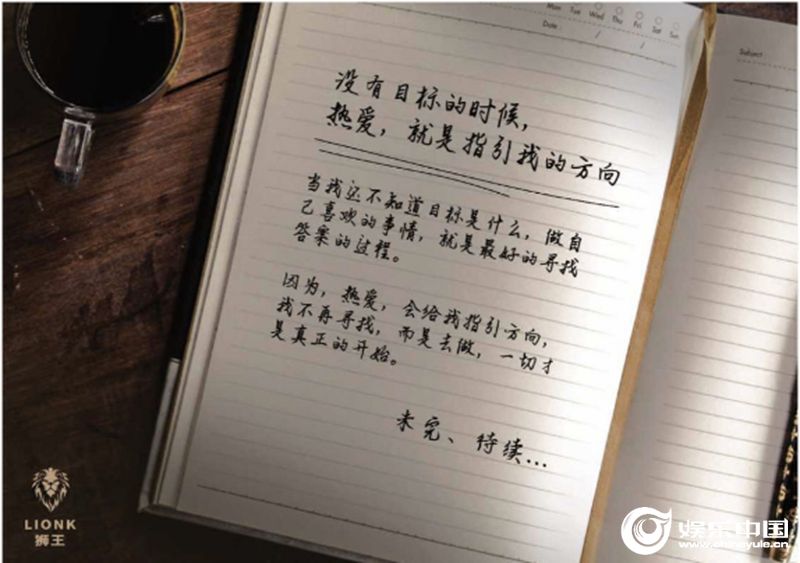 Mon Tue Wed Thu Fri Sat Sun
Date / /
没有目标的时候，
热爱，就是指引我的方向
当我还不知道目标是什么，做自
己喜欢的事情，就是最好的寻找
答案的过程。
因为，热爱，会给我指引方向，
我不再寻找，而是去做，一切才
是真正的开始。
未完、待续...
Subject
LIONK
狮王
娱乐中国
www.chineyule.cn